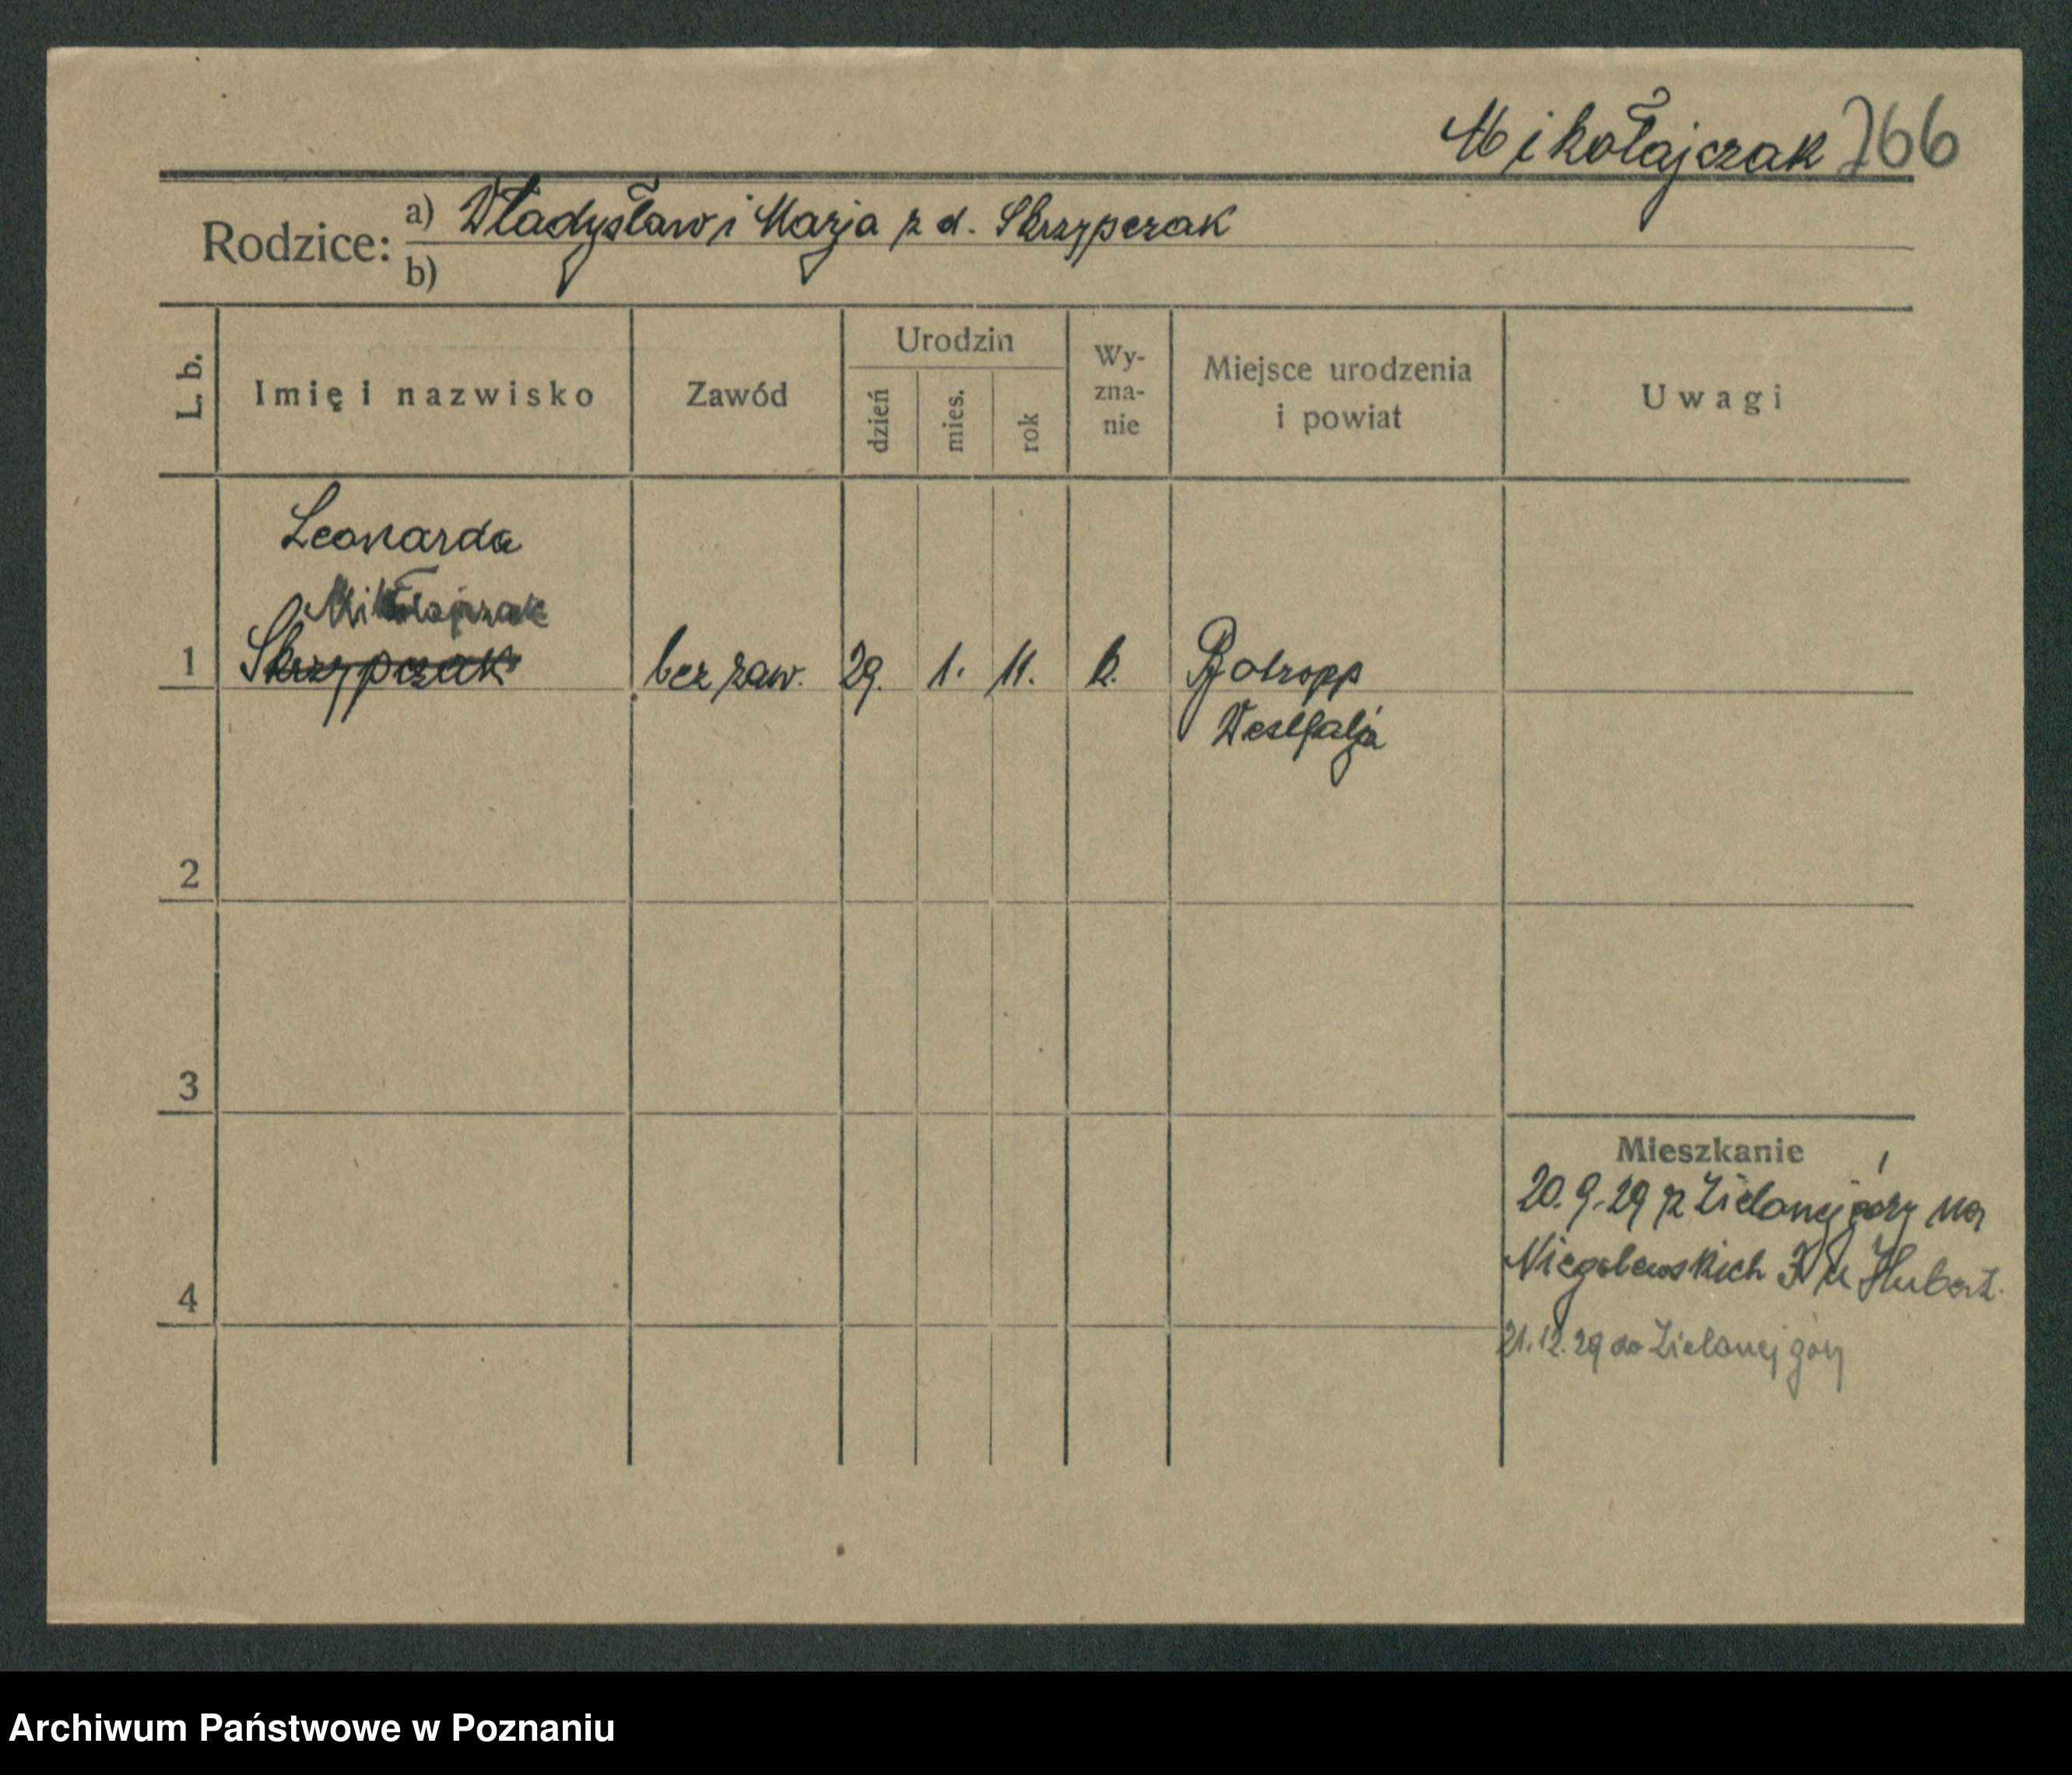 Mikołajczak 766
Rodzice: a) Władysław i Marja z d. Skrzypczak
b)
L. b.
Imię i nazwisko
Zawód
Urodzin
dzień
mies.
rok
Wy-
zna-
nie
Miejsce urodzenia
i powiat
Uwagi
Leonarda
Mikołajczak
1 Skrzypczak bez zaw. 29. 1. 11. k. Botropp
Westfalja
2
3
Mieszkanie
20.9.29 z Zielonejgóry na
Niegolewskich u Hubert.
4
21.12.29 do Zielonej góry
Archiwum Państwowe w Poznaniu